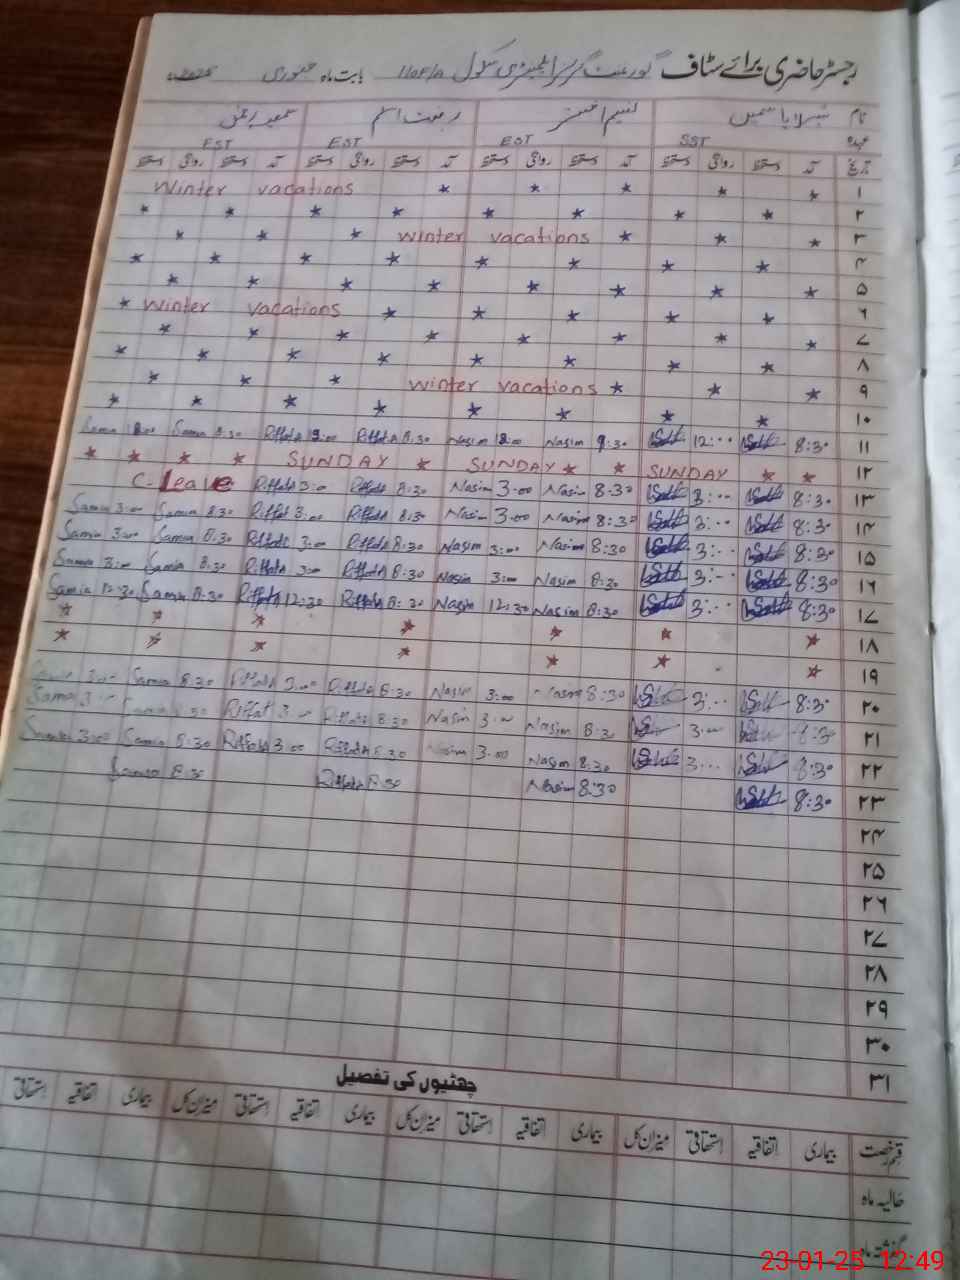 رجسٹر حاضری برائے سٹاف گورنمنٹ گرلز ایلیمنٹری سکول 110F/A بابت ماہ جنوری 2025ء
نام شہلا یاسمین نسیم اختر رفعت اسلم
عہدہ SST EST EST EST
تاریخ آمد دستخط روانگی دستخط آمد دستخط روانگی دستخط آمد دستخط روانگی دستخط آمد دستخط روانگی دستخط
۱ Winter vacations
۲
۳ winter vacations
۴
۵
۶ winter vacations
۷
۸
۹ winter vacations
۱۰
۱۱ 8:30 12:00 9:30 Nasim Nasim 8:30 Riffat Riffat 8:30 Samia Samia
۱۲ SUNDAY SUNDAY SUNDAY
۱۳ 8:30 3:00 8:30 Nasim 3:00 Nasim 8:30 Riffat 3:00 Riffat C-Leave
۱۴ 8:30 3:00 8:30 Nasim 3:00 Nasim 8:30 Riffat 3:00 Riffat 8:30 Samia 3:00 Samia
۱۵ 8:30 3:00 8:30 Nasim 3:00 Nasim 8:30 Riffat 3:00 Riffat 8:30 Samia 3:00 Samia
۱۶ 8:30 3:00 8:30 Nasim 3:00 Nasim 8:30 Riffat 3:00 Riffat 8:30 Samia 3:00 Samia
۱۷ 8:30 3:00 8:30 Nasim 12:30 Nasim 8:30 Riffat 12:30 Riffat 8:30 Samia 12:30 Samia
۱۸
۱۹
۲۰ 8:30 3:00 8:30 Nasim 3:00 Nasim 8:30 Riffat 3:00 Riffat 8:30 Samia 3:00 Samia
۲۱ 8:30 3:00 8:30 Nasim 3:00 Nasim 8:30 Riffat 3:00 Riffat 8:30 Samia 3:00 Samia
۲۲ 8:30 3:00 8:30 Nasim 3:00 Nasim 8:30 Riffat 3:00 Riffat 8:30 Samia 3:00 Samia
۲۳ 8:30 8:30 Nasim 8:30 Riffat 8:30 Samia
۲۴
۲۵
۲۶
۲۷
۲۸
۲۹
۳۰
۳۱
چھٹیوں کی تفصیل
قسم رخصت بیماری اتفاقیہ استحقاقی میزان کل بیماری اتفاقیہ استحقاقی میزان کل بیماری اتفاقیہ استحقاقی میزان کل بیماری اتفاقیہ استحقاقی
حالیہ ماہ
گذشتہ ماہ
23-01-25 12:49